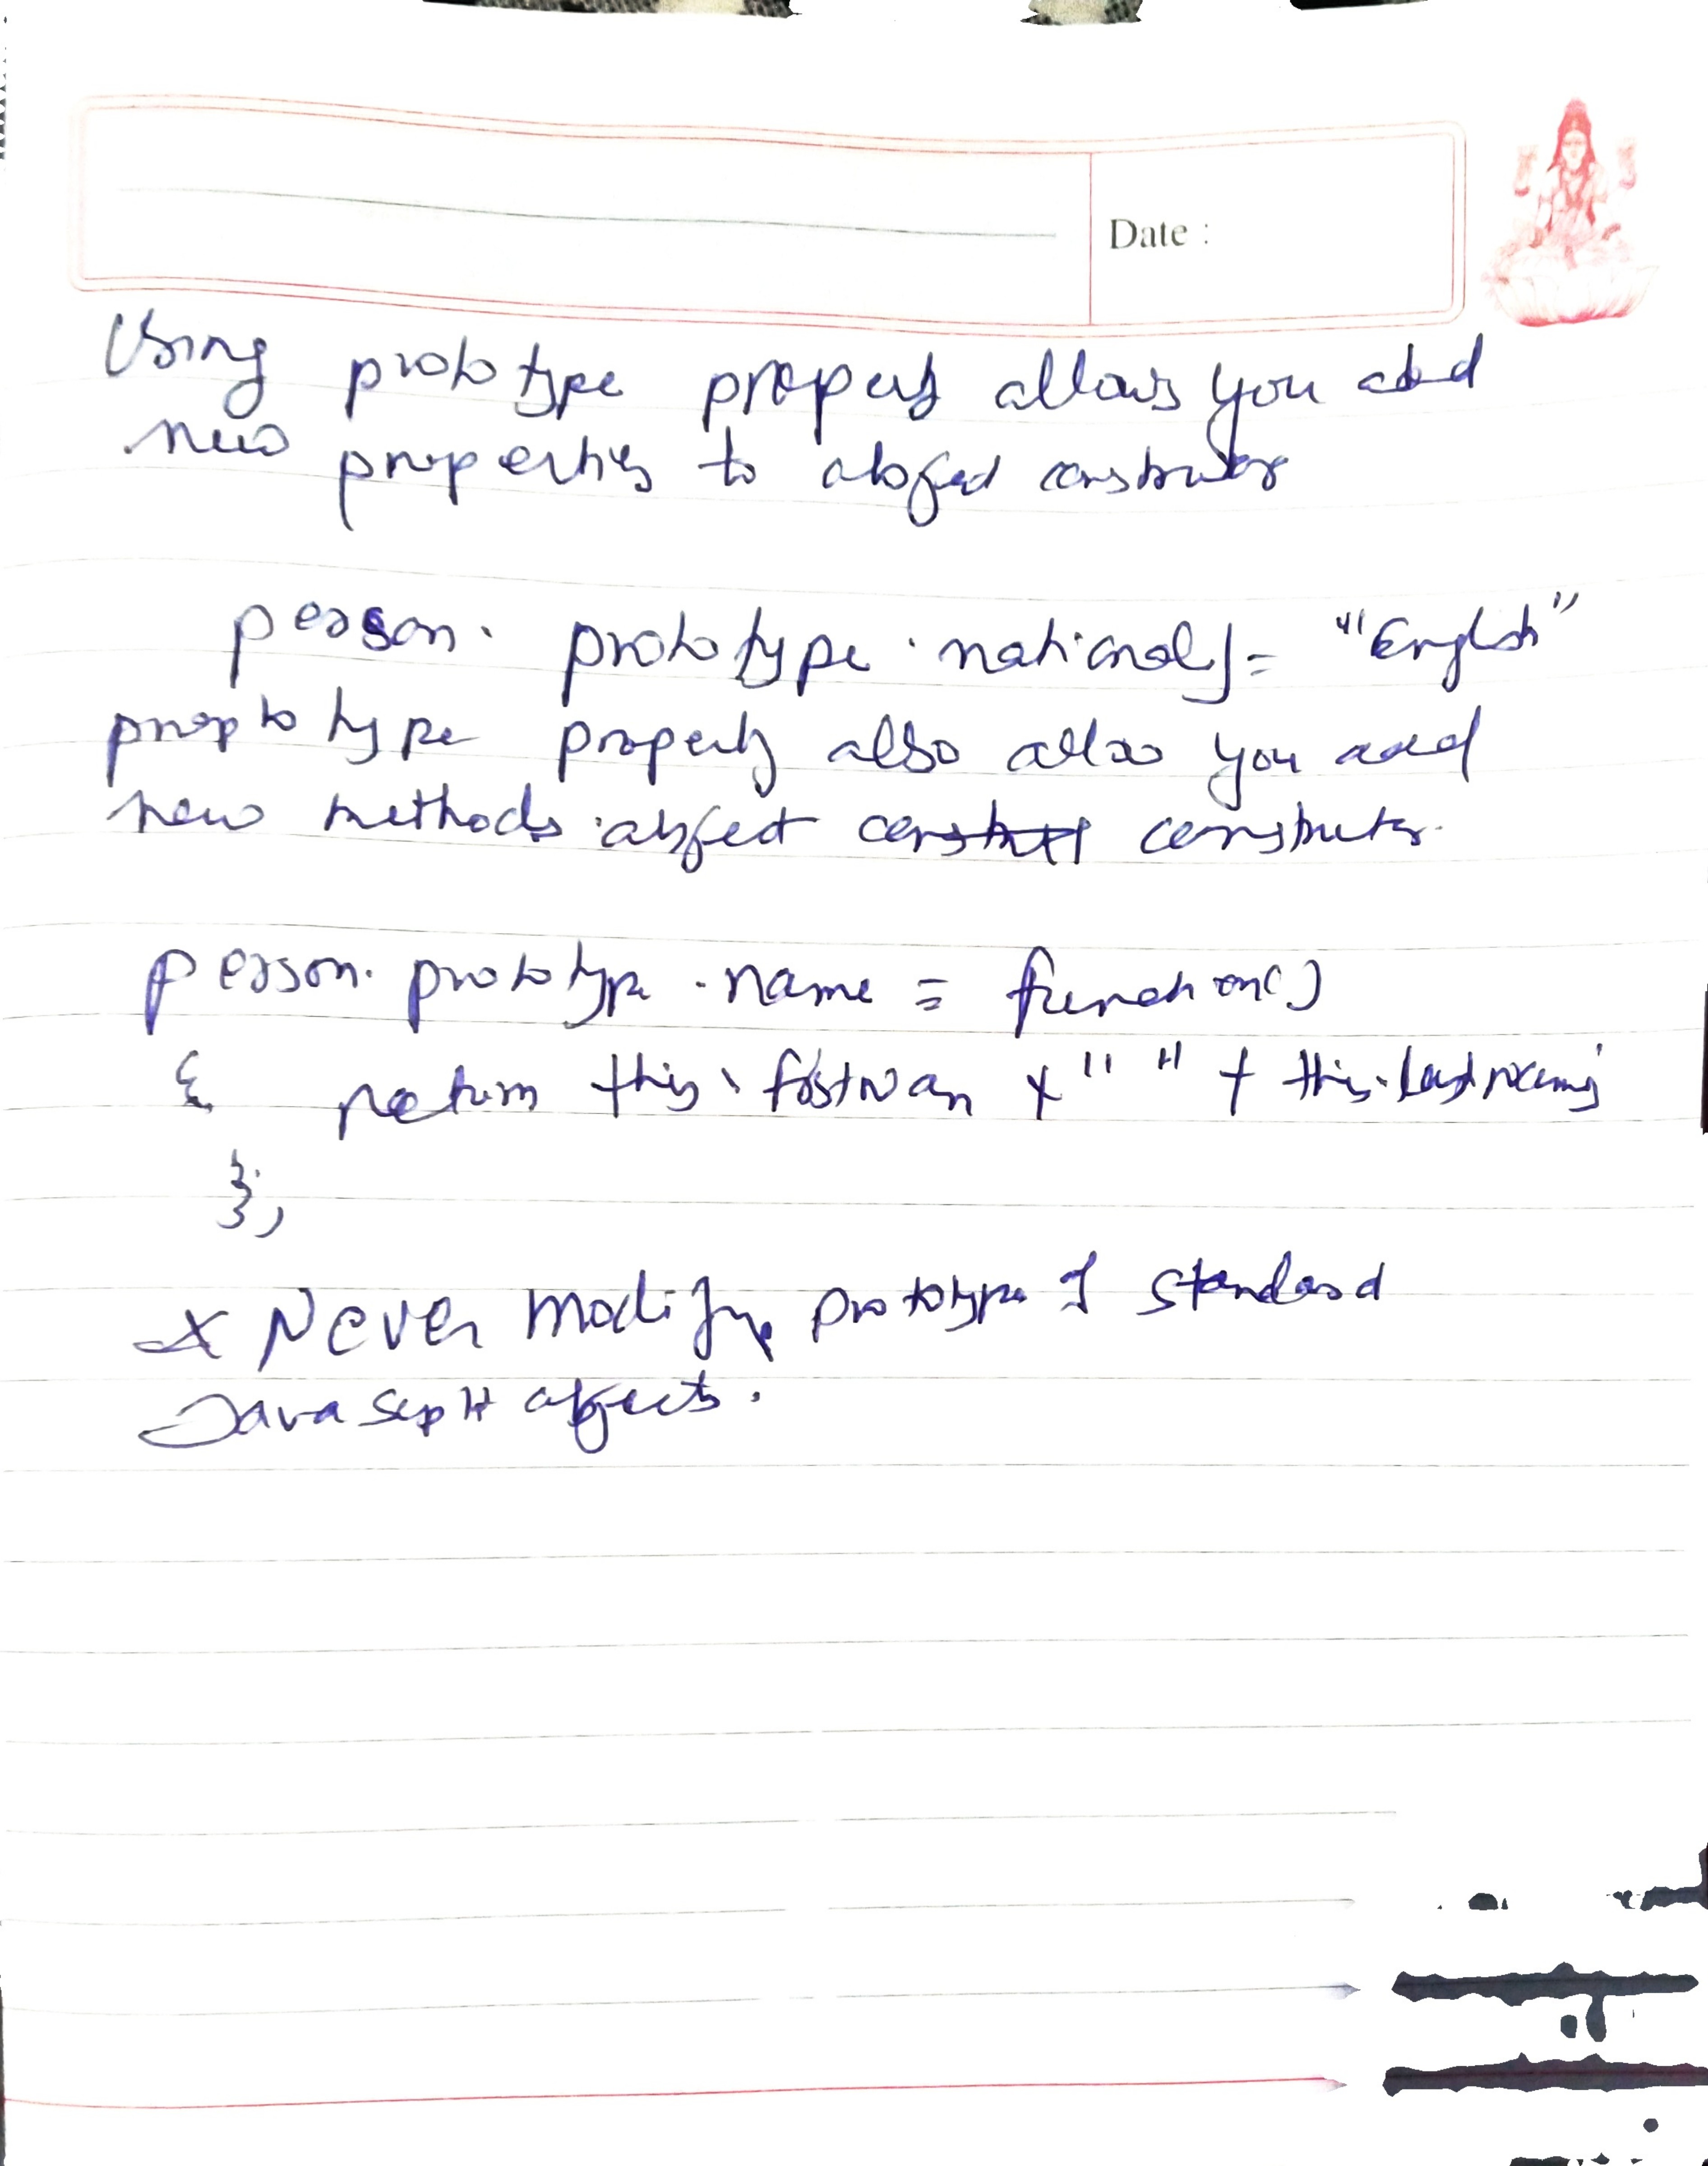 Date :
Using prototype property allows you add
new properties to object constructor
person. prototype . nationality = "English"
proptotype property also allow you add
new methods object constructor.
person. prototype . name = function()
{ return this. firstNam + " " + this. lastname;
};
* Never modify prototype of standard
JavaScript objects.